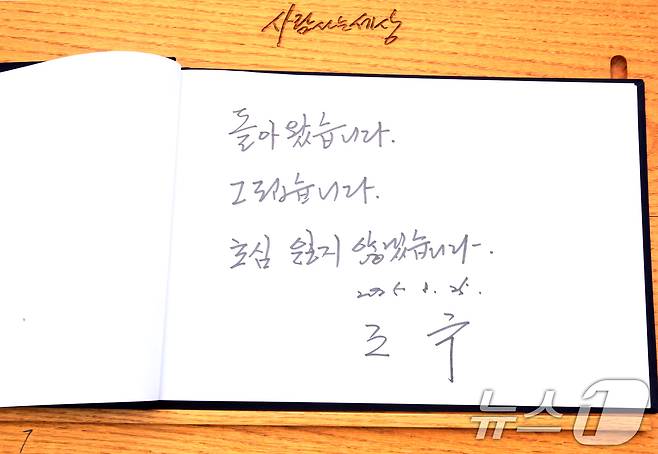 사람사는세상
돌아왔습니다.
그립습니다.
초심 잃지 않겠습니다.
2025. 8. 25.
조 국
뉴스1